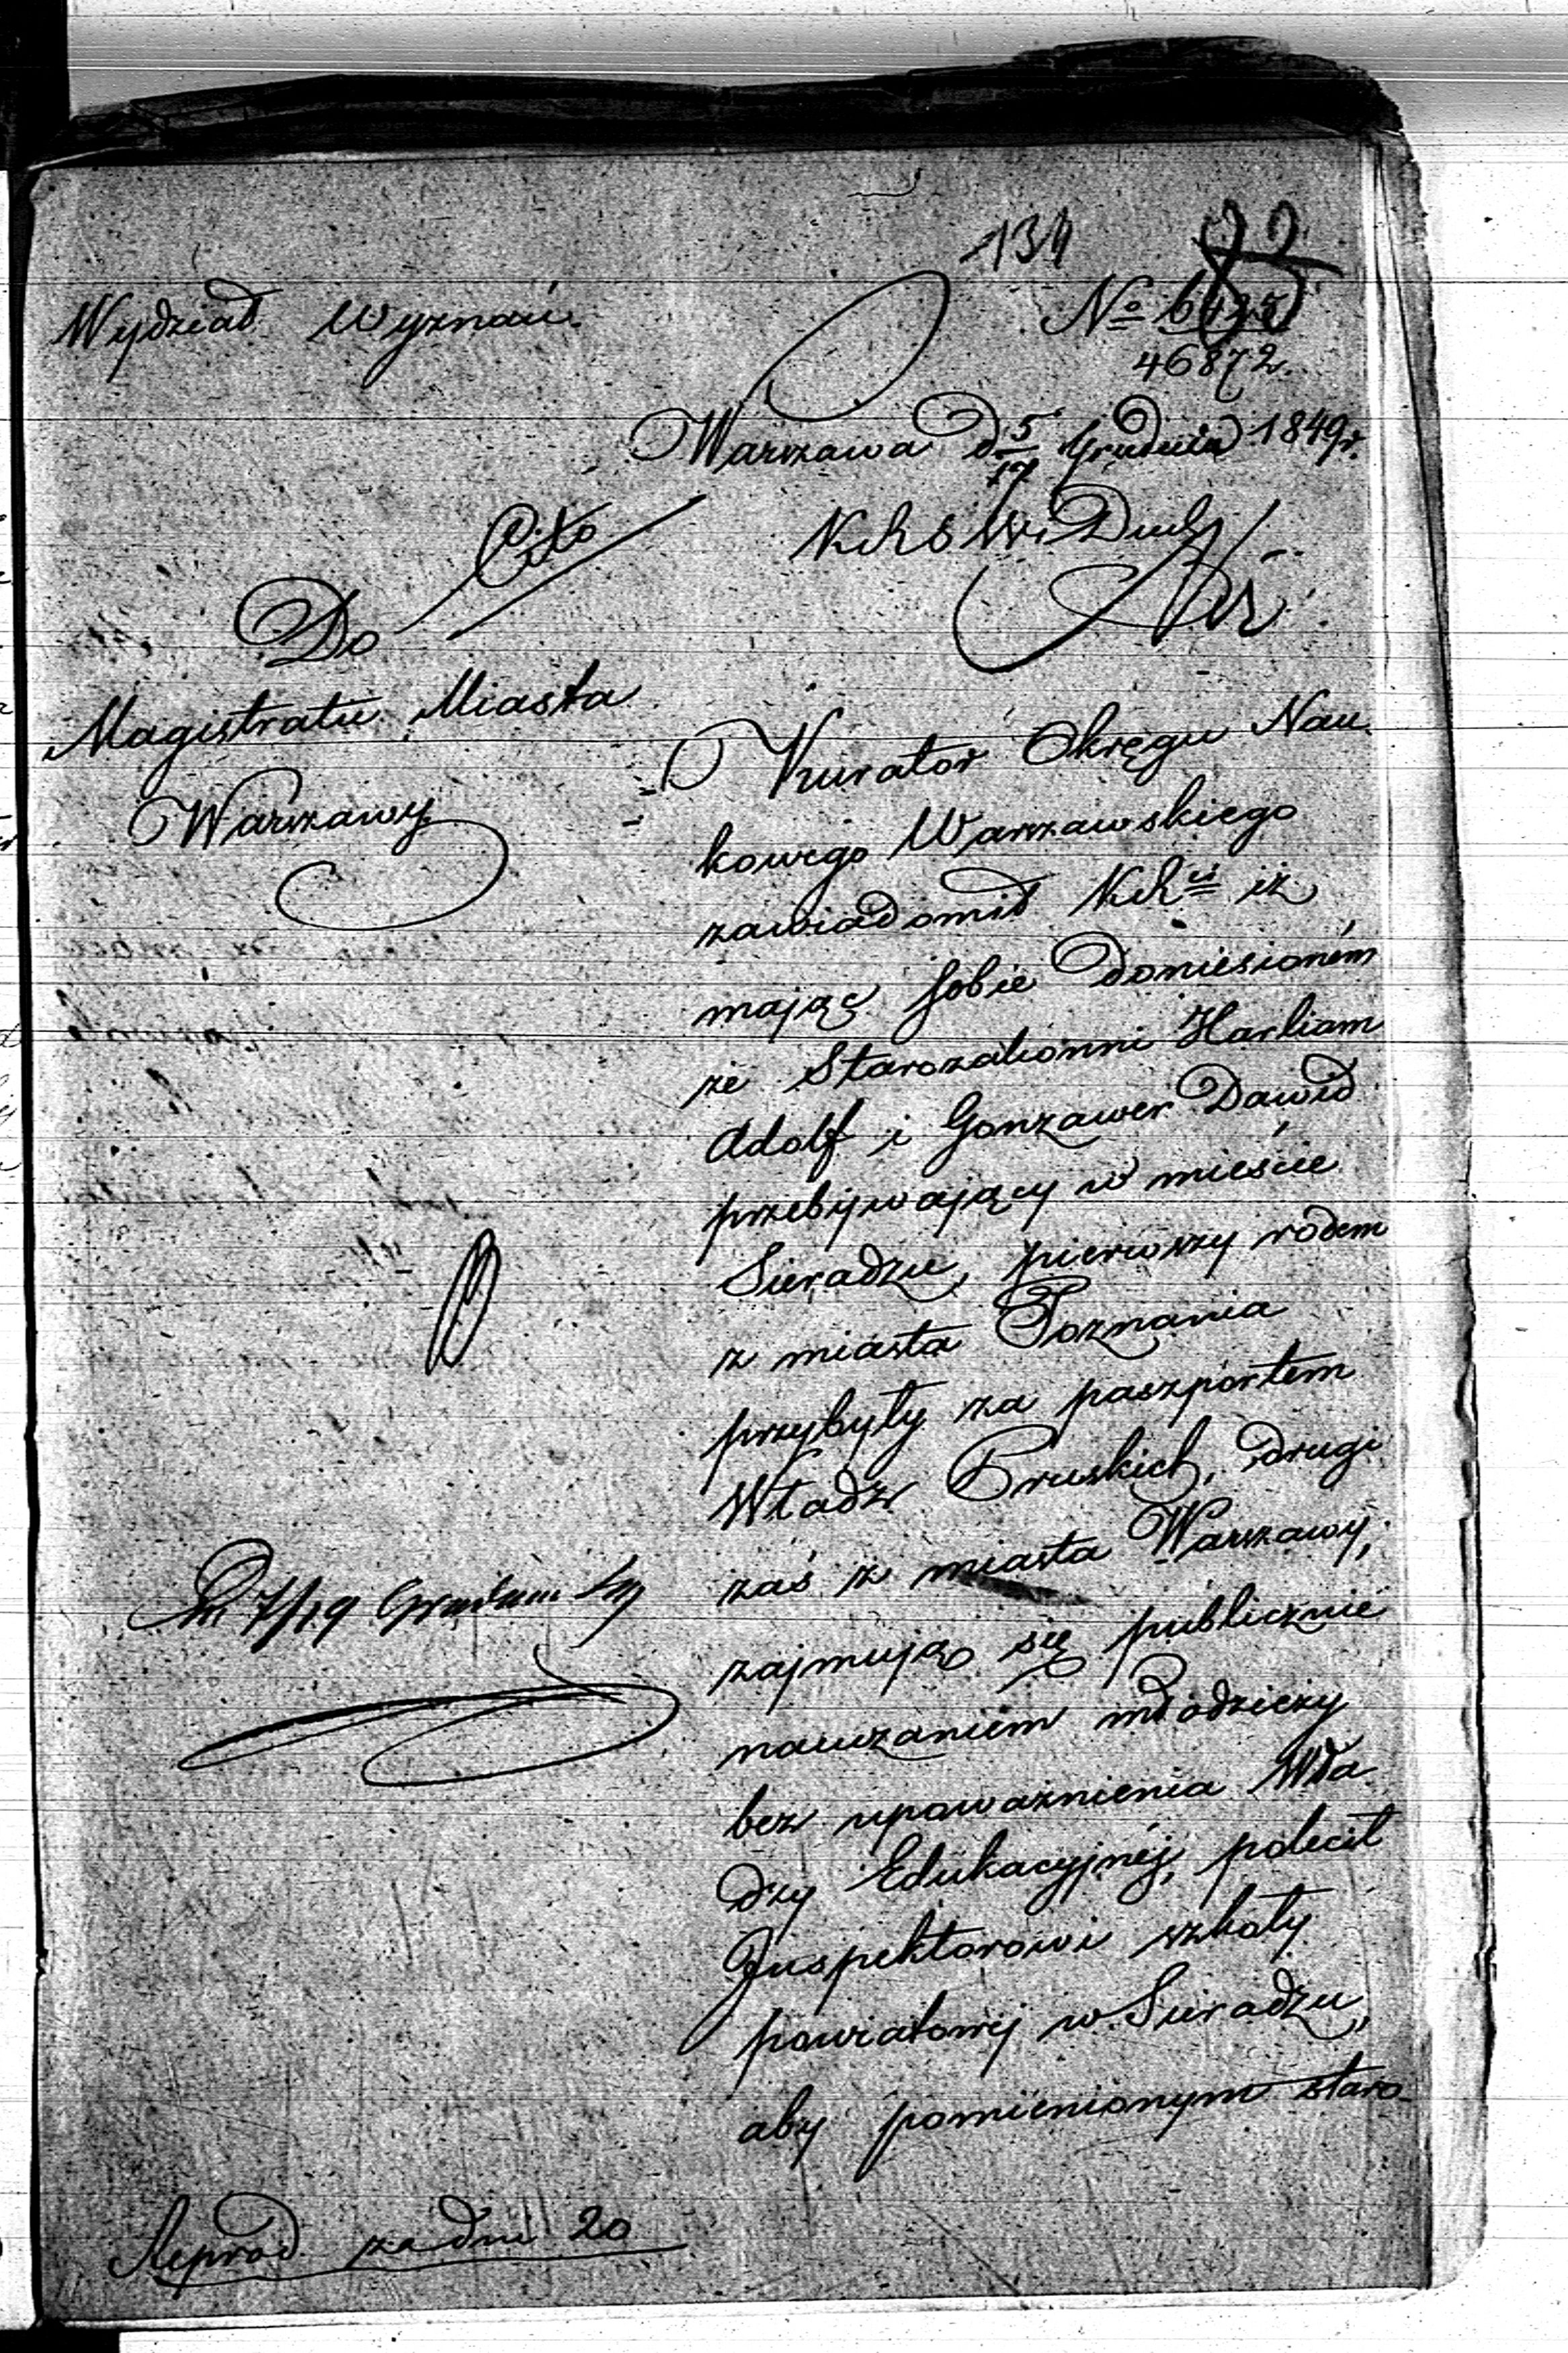 134
Wydział Wyznań.
No
46872.
Warszawa d 5/17 Grudnia 1849 r.
Cito
KRSW i Duch
Do
Magistratu Miasta
Warszawy
Kurator Okręgu Nau
kowego Warszawskiego
zawiadomił KR iż
mając sobie doniesioném
że Starozakonni Harliam
Adolf i Gonzawer Dawid
przebywający w mieście
Sieradzu, pierwszy rodem
z miasta Poznania
przybyły za paszportem
Władz Pruskich, drugi
zaś z miasta Warszawy,
zajmują się publicznie
nauczaniem młodzieży
bez upoważnienia Wła
dzy Edukacyjnéj, polecił
Inspektorowi szkoły
powiatowéj w Sieradzu,
aby pomienionym staro
7/19 Grudnia
Reprod. za dni 20